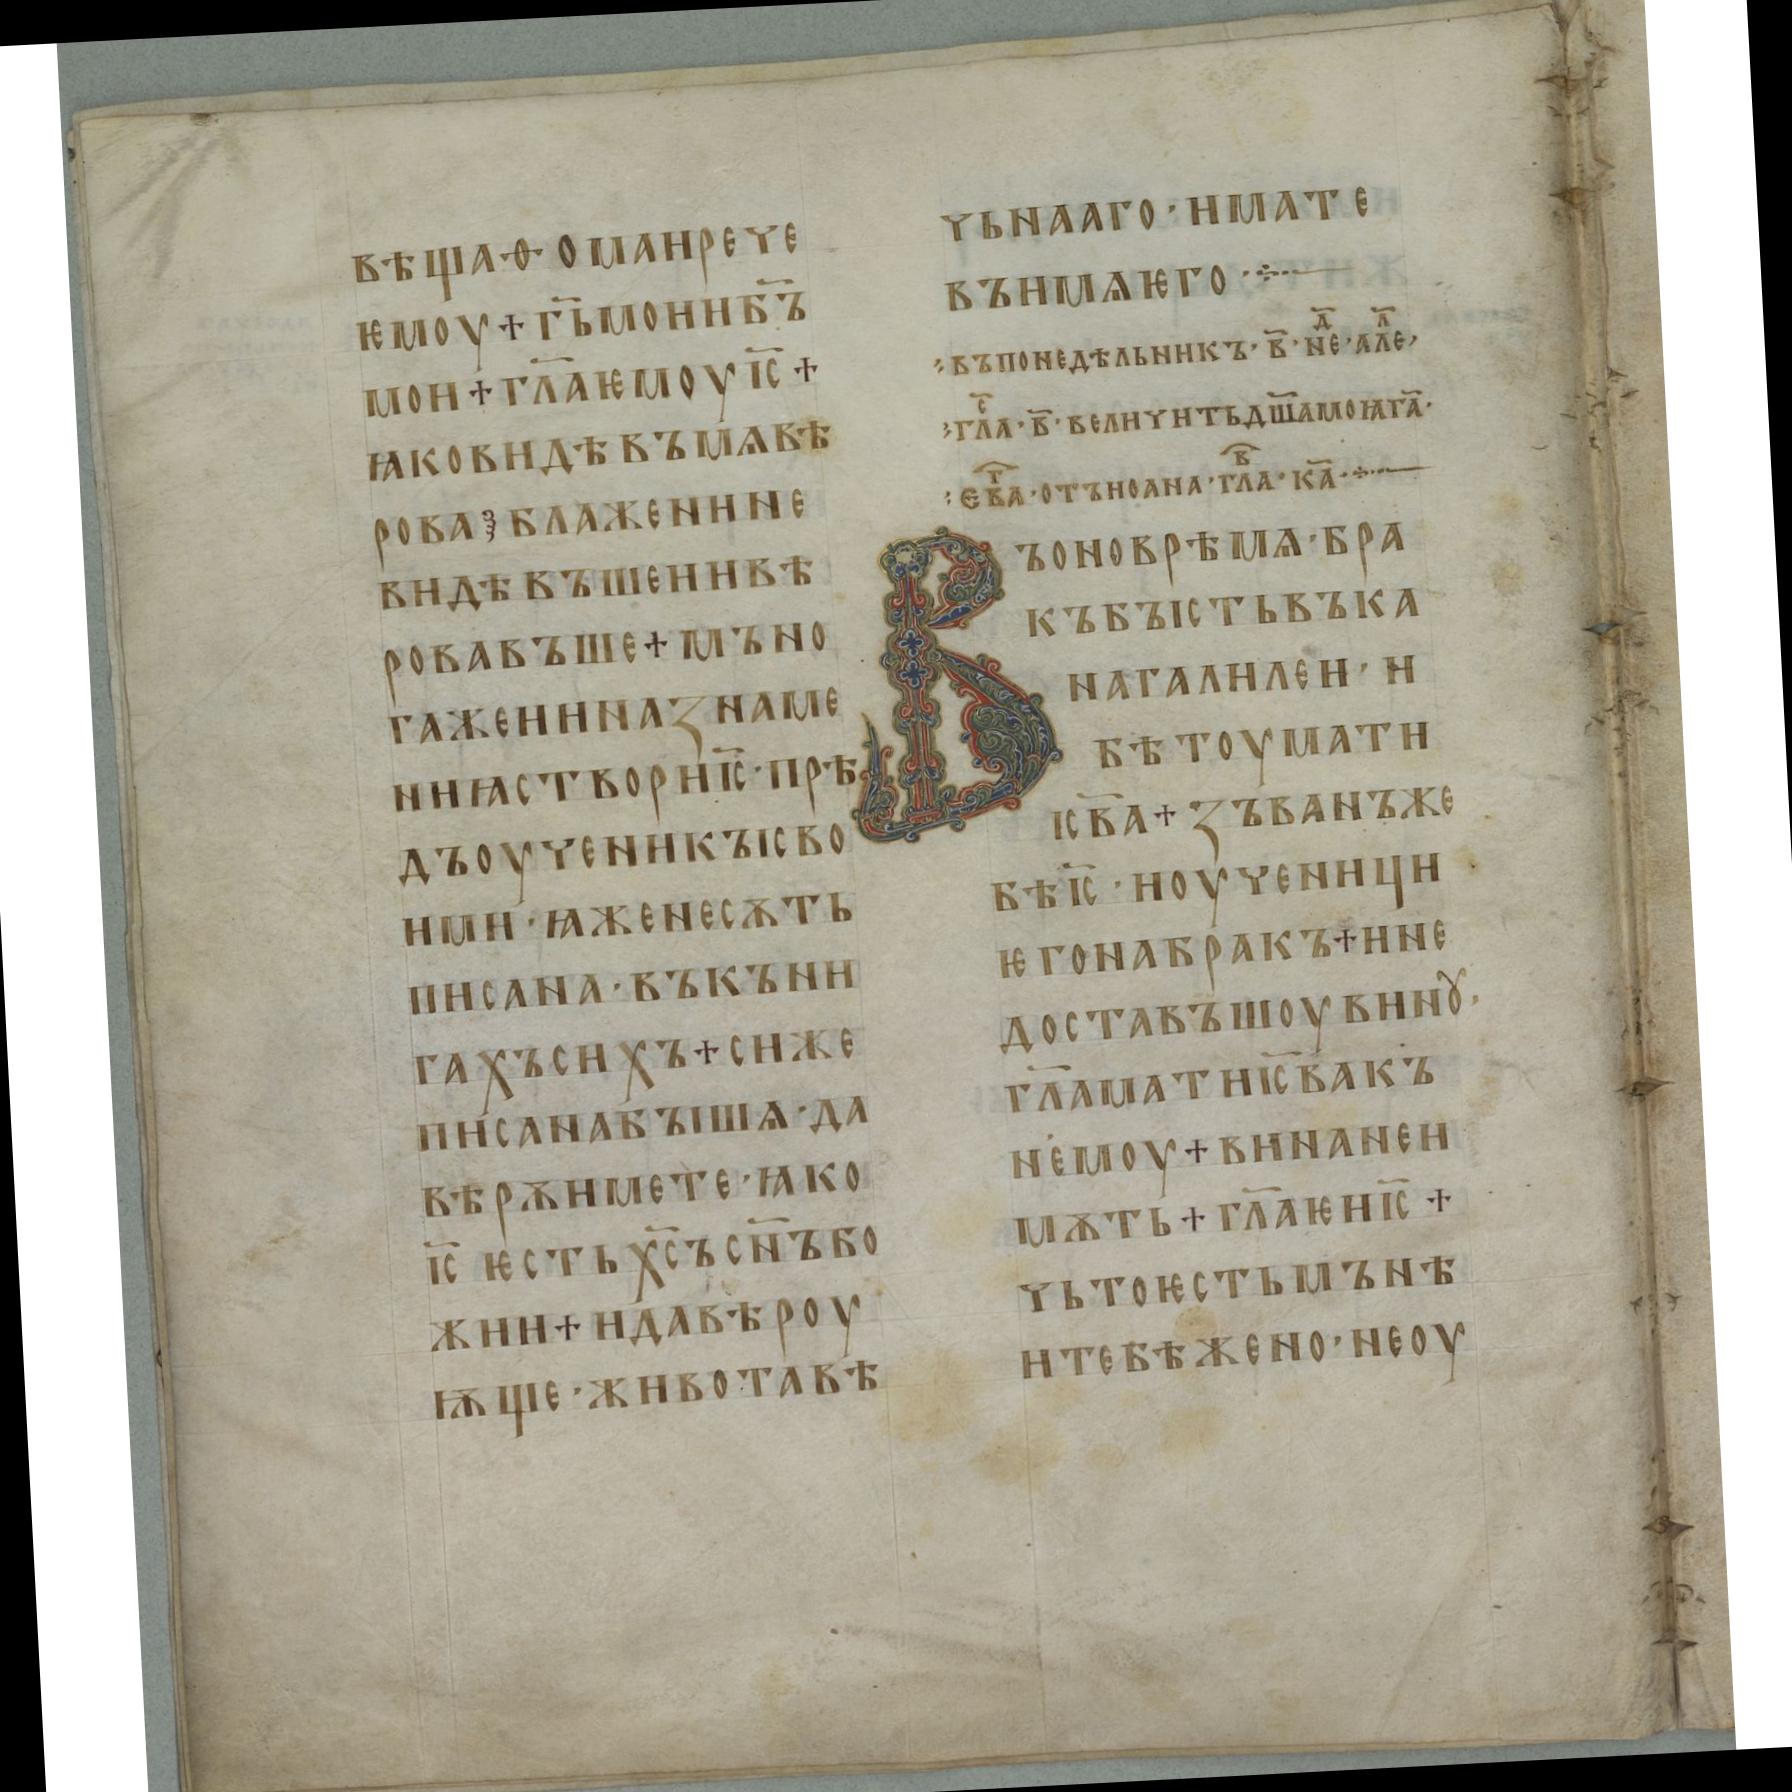 вѣща ѳома и рече
ѥмоу + г҃ь мои и б҃ъ
мои + гл҃а ѥмоу і҃с +
ꙗко видѣвъ мѧ вѣ
рова ꙁ блажении не
видѣвъшеи и вѣ
ровавъше + мъно
га же и ина ꙁнаме
ниꙗ створи і҃с · прѣ
дъ оученикꙑ сво
ими · ꙗже не сѫть
писана · въ кън и
гахъ сихъ + си же
писана бꙑшѧ · да
вѣрѫ имете · ꙗко
і҃с ѥсть х҃съ с҃нъ бо
жии + и да вѣроу
ѭще · живота вѣ
чьнааго · имате
въ имѧ ѥго ·
въ понедѣльникъ · в҃ · не д҃ · але л҃ ·
гла с҃ · в҃ · величить дш҃а моꙗ га҃ ·
ев҃а г҃ · отъ иоана · гла в҃ · ка҃ ·
Въ оно врѣмѧ · бра
къ бꙑсть въ ка
на галилеи · и
бѣ тоу мати
ісв҃а + ꙁъванъ же
бѣ і҃с · и оученици
ѥго на бракъ + и не
доставъшоу винꙋ ·
гл҃а мати іс҃ва къ
немоу + вина не и
мѫть + гл҃а ѥи і҃с +
чьто ѥсть мънѣ
и тебѣ жено · не оу